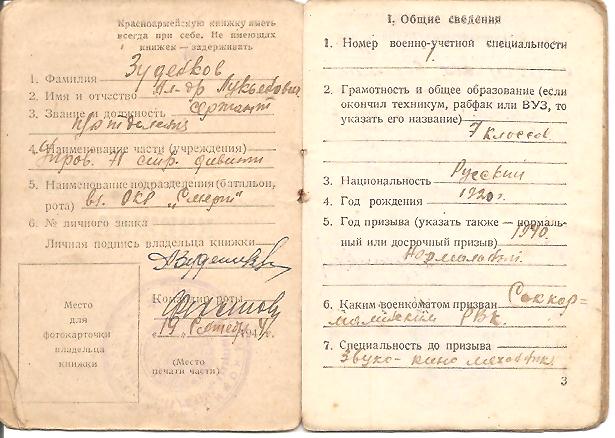 Красноармейскую книжку иметь
всегда при себе. Не имеющих
книжек — задерживать
1. Фамилия Зудейков
2. Имя и отчество Ал-др Лукьянович
3. Звание и должность сержант
4. Наименование части (учреждения)
71 стр. дивизии
5. Наименование подразделения (батальон,
рота)
6. № личного знака
Личная подпись владельца книжки
Командир роты
„19“ Сентябрь 1941 г.
(Место
печати части)
Место
для
фотокарточки
владельца
книжки
I. Общие сведения
1. Номер военно-учетной специальности
1.
2. Грамотность и общее образование (если
окончил техникум, рабфак или ВУЗ, то
указать его название)
7 классов
3. Национальность Русский
4. Год рождения 1920 г.
5. Год призыва (указать также — нормаль-
ный или досрочный призыв) 1940.
Нормальный.
6. Каким военкоматом призван
РВК.
7. Специальность до призыва
Звуко-кино механик.
3